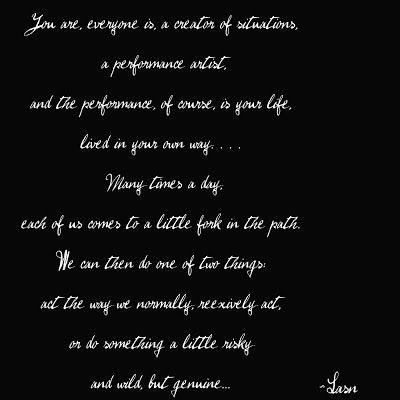 You are, everyone is, a creator of situations,
a performance artist,
and the performance, of course, is your life,
lived in your own way. . . .
Many times a day,
each of us comes to a little fork in the path.
We can then do one of two things:
act the way we normally, reexively act,
or do something a little risky
and wild, but genuine...
~Lasn